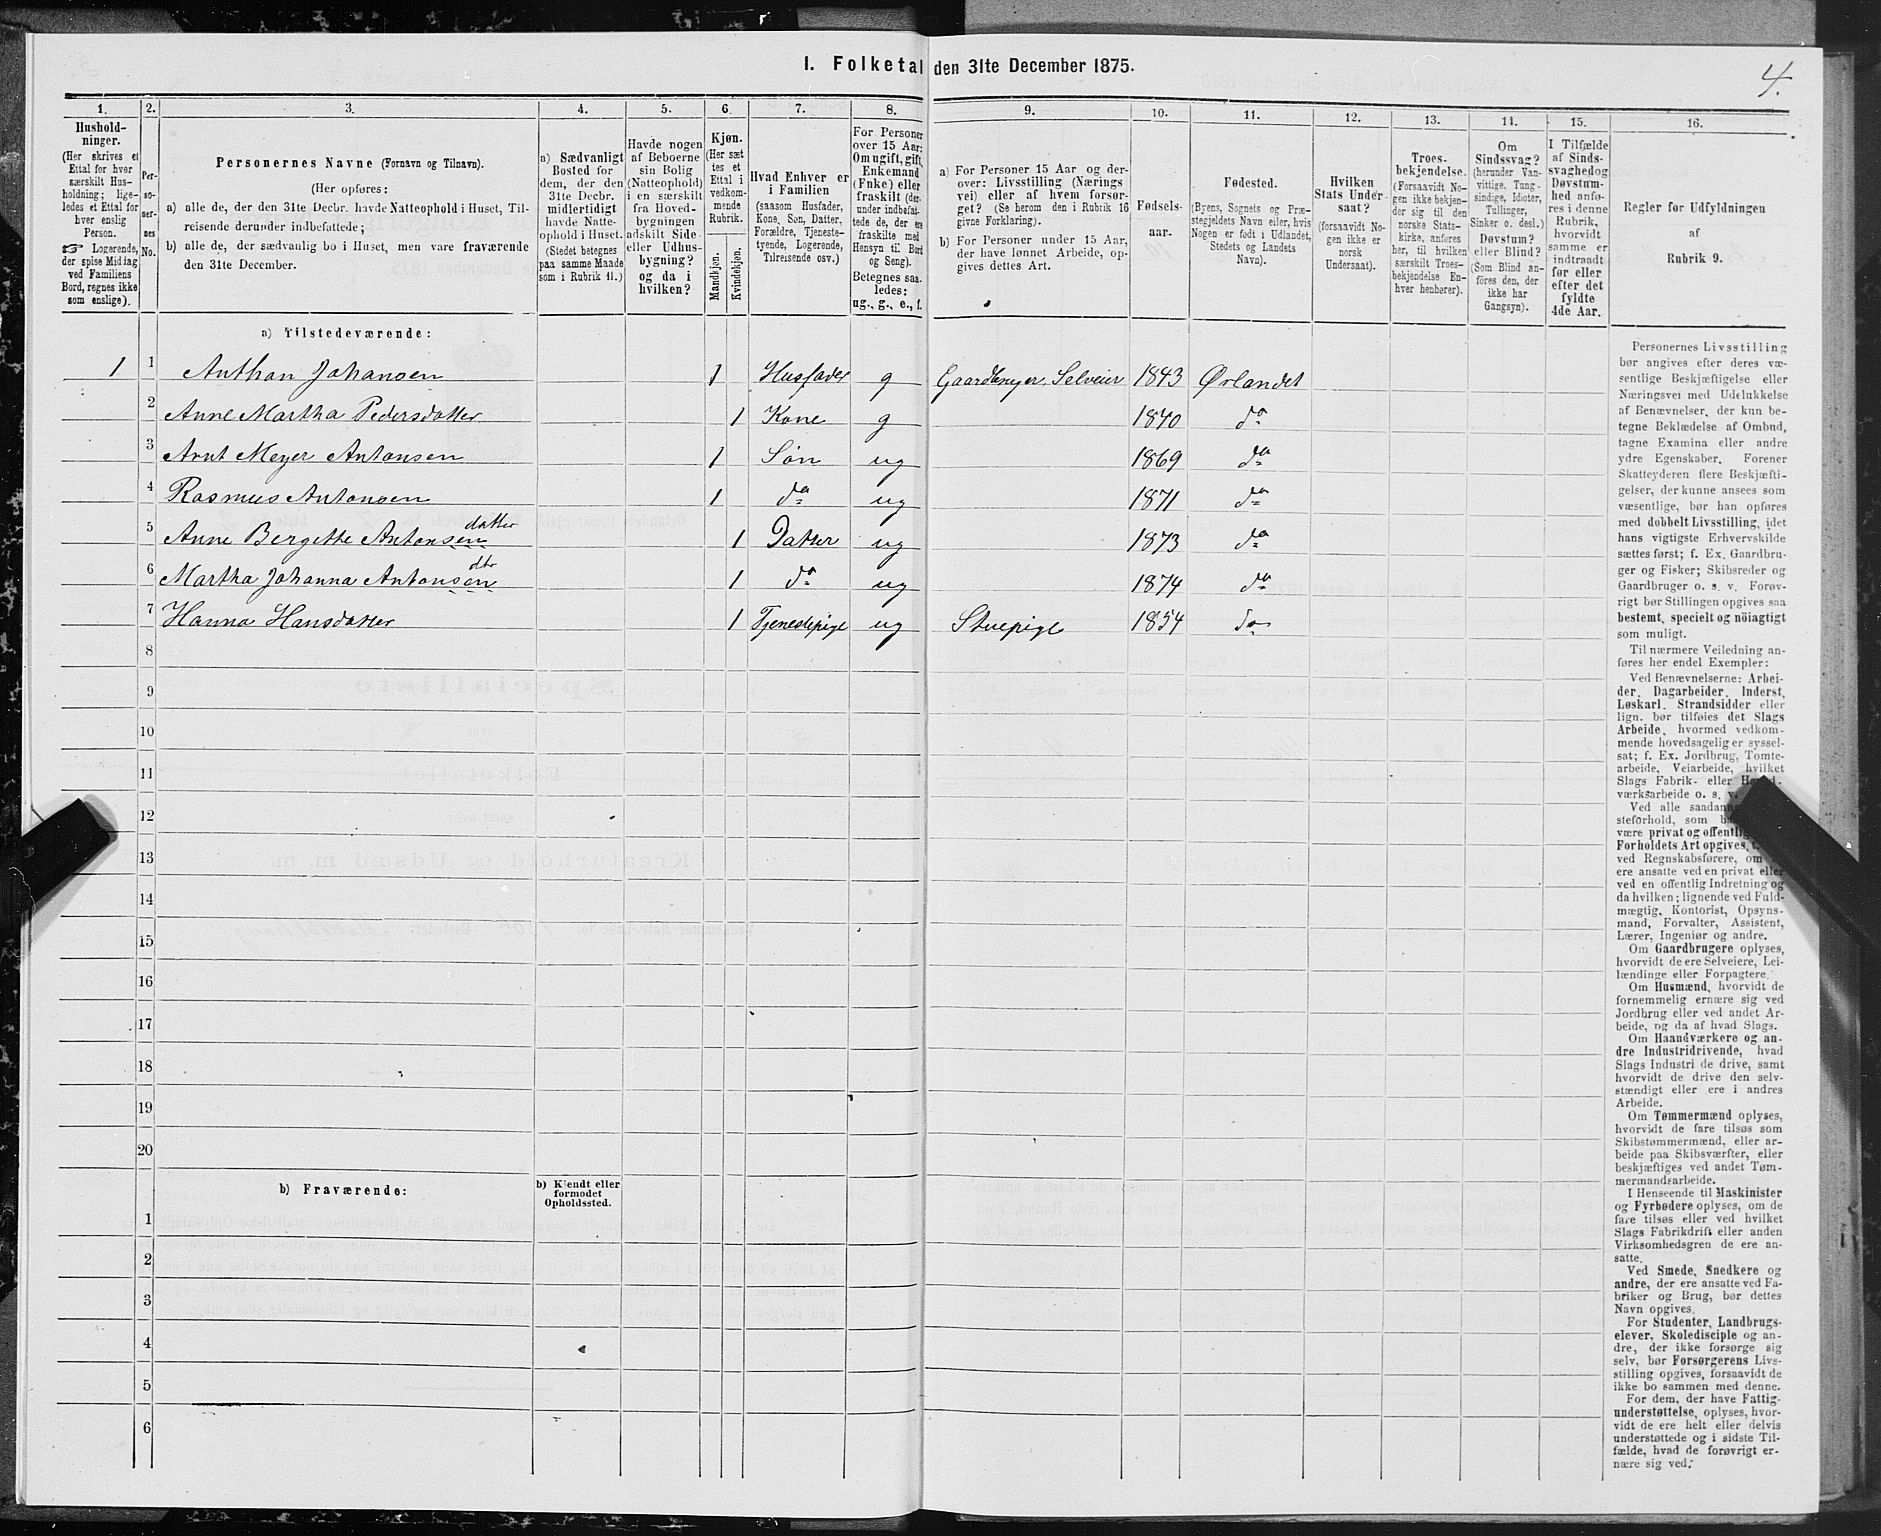 I. Folketal den 31te December 1875.
4.
1. 2. 3. 4. 5. 6. 7. 8. 9. 10. 11. 12. 13. 14. 15. 16.
Hushold-
ninger.
(Her skrives et
Ettal for hver
særskilt Hus-
holdning; lige-
ledes et Ettal for
hver enslig
Person.
☞ Logerende,
der spise Middag
ved Familiens
Bord, regnes ikke
som enslige).
Per-
so-
ner-
nes
No.
Personernes Navne (Fornavn og Tilnavn).
(Her opføres:
a) alle de, der den 31te Decbr. havde Natteophold i Huset, Til-
reisende derunder indbefattede;
b) alle de, der sædvanlig bo i Huset, men vare fraværende
den 31te December.
a) Sædvanligt
Bosted for
dem, der den
31te Decbr.
midlertidigt
havde Natte-
ophold i Huset.
(Stedet betegnes
paa samme Maade
som i Rubrik 11.)
Havde nogen
af Beboerne
sin Bolig
(Natteophold)
i en særskilt
fra Hoved-
bygningen
adskilt Side-
eller Udhus-
bygning?
og da i
hvilken?
Kjøn.
(Her sæt
tes et
Ettal i
vedkom-
mende
Rubrik.
Mandkjøn.
Kvindekjøn.
Hvad Enhver er
i Familien
(saasom Husfader,
Kone, Søn, Datter,
Forældre, Tjeneste-
tyende, Logerende,
Tilreisende osv.)
For Personer
over 15 Aar:
Om ugift, gift,
Enkemand
(Enke) eller
fraskilt (der-
under indbefat-
tede de, der ere
fraskilte med
Hensyn til Bord
og Seng).
Betegnes saa-
ledes:
ug., g., e., f.
a) For Personer 15 Aar og der-
over: Livsstilling (Nærings
vei) eller af hvem forsør-
get? (Se herom den i Rubrik 16
givne Forklaring).
b) For Personer under 15 Aar,
der have lønnet Arbeide, op-
gives dettes Art.
Fødsels-
aar.
Fødested.
(Byens, Sognets og Præ-
stegjeldets Navn eller, hvis
Nogen er født i Udlandet,
Stedets og Landets
Navn).
Hvilken
Stats Under-
saat?
(forsaavidt No-
gen ikke er
norsk
Undersaat).
Troes-
bekjendelse.
(Forsaavidt No-
gen ikke bekjen-
der sig til den
norske Stats-
kirke, anføres
her, til hvilken
særskilt Troes-
bekjendelse En-
hver henhører).
Om
Sindssvag?
(herunder Van-
vittige, Tung-
sindige, Idioter,
Tullinger,
Sinker o. desl.)
Døvstum?
eller Blind?
(Som Blind an-
føres den, der
ikke har
Gangsyn).
I Tilfælde
af Sinds-
svaghed og
Døvstum-
hed anfø-
res i denne
Rubrik,
hvorvidt
samme er
indtraadt
før eller
efter det
fyldte
4de Aar.
Regler for Udfyldningen
af
Rubrik 9.
a) Tilstedeværende:
1 1 Anthon Johansen 1 Husfader g Gaardbruger, Selveier 1843 Ørlandet
2 Anne Martha Pedersdatter 1 Kone g 1840 do
3 Arnt Meyer Antonsen 1 Søn ug 1869 do
4 Rasmus Antonsen 1 do ug 1871 do
5 Anne Bergette Antonsen datter 1 Datter ug 1873 do
6 Martha Johanna Antonsen dtr 1 do ug 1874 do
7 Hanna Hansdatter 1 Tjenestepige ug Stuepige 1854 do
8
9
10
11
12
13
14
15
16
17
18
19
20
b) Fraværende:
b) Kjendt eller
formodet
Opholdssted.
1
2
3
4
5
6
Personernes Livsstilling
bør angives efter deres væ-
sentlige Beskjæftigelse eller
Næringsvei med Udelukkelse
af Benævnelser, der kun be-
tegne Beklædelse af Ombud,
tagne Examina eller andre
ydre Egenskaber. Forener
Skatteyderen flere Beskjæfti-
gelser, der kunne ansees som
væsentlige, bør han opføres
med dobbelt Livsstilling, idet
hans vigtigste Erhvervskilde
sættes først; f. Ex. Gaardbru-
ger og Fisker; Skibsreder og
Gaardbruger o. s. v. Forøv-
rigt bør Stillingen opgives saa
bestemt, specielt og nöiagtigt
som muligt.
Til nærmere Veiledning an-
føres her endel Exempler:
Ved Benævnelserne: Arbei-
der, Dagarbeider, Inderst,
Løskarl, Strandsidder eller
lign. bør tilføies det Slags
Arbeide, hvormed vedkom-
mende hovedsagelig er syssel-
sat; f. Ex. Jordbrug, Tomte-
arbeide, Veiarbeide, hvilket
Slags Fabrik- eller
værksarbeide o. s. v.
Ved alle saadanne
steforhold, som
være privat og offentlig
Forholdets Art opgives,
ved Regnskabsførere, om
ere ansatte ved en privat eller
ved en offentlig Indretning og
da hvilken; lignende ved Fuld-
mægtig, Kontorist, Opsyns-
mand, Forvalter, Assistent,
Lærer, Ingeniør og andre.
Om Gaardbrugere oplyses,
hvorvidt de ere Selveiere, Lei-
lændinge eller Forpagtere.
Om Husmænd, hvorvidt de
fornemmelig ernære sig ved
Jordbrug eller ved andet Ar-
beide, og da af hvad Slags.
Om Haandværkere og an-
dre Industridrivende, hvad
Slags Industri de drive, samt
hvorvidt de drive den selv-
stændigt eller ere i andres
Arbeide.
Om Tømmermænd oplyses,
hvorvidt de fare tilsøs som
Skibstømmermænd, eller ar-
beide paa Skibsværfter, eller
beskjæftiges ved andet Tøm-
mermandsarbeide.
I Henseende til Maskinister
og Fyrbødere oplyses, om de
fare tilsøs eller ved hvilket
Slags Fabrikdrift eller anden
Virksomhedsgren de ere an-
satte.
Ved Smede, Snedkere og
andre, der ere ansatte ved Fa-
briker og Brug, bør dettes
Navn opgives.
For Studenter, Landbrugs-
elever, Skoledisciple og an-
dre, der ikke forsørge sig
selv, bør Forsørgerens Livs-
stilling opgives, forsaavidt de
ikke bo sammen med denne.
For dem, der have Fattig-
understøttelse, oplyses, hvor-
vidt de ere helt eller delvis
understøttede og i sidste Til-
fælde, hvad de forøvrigt er-
nære sig ved.